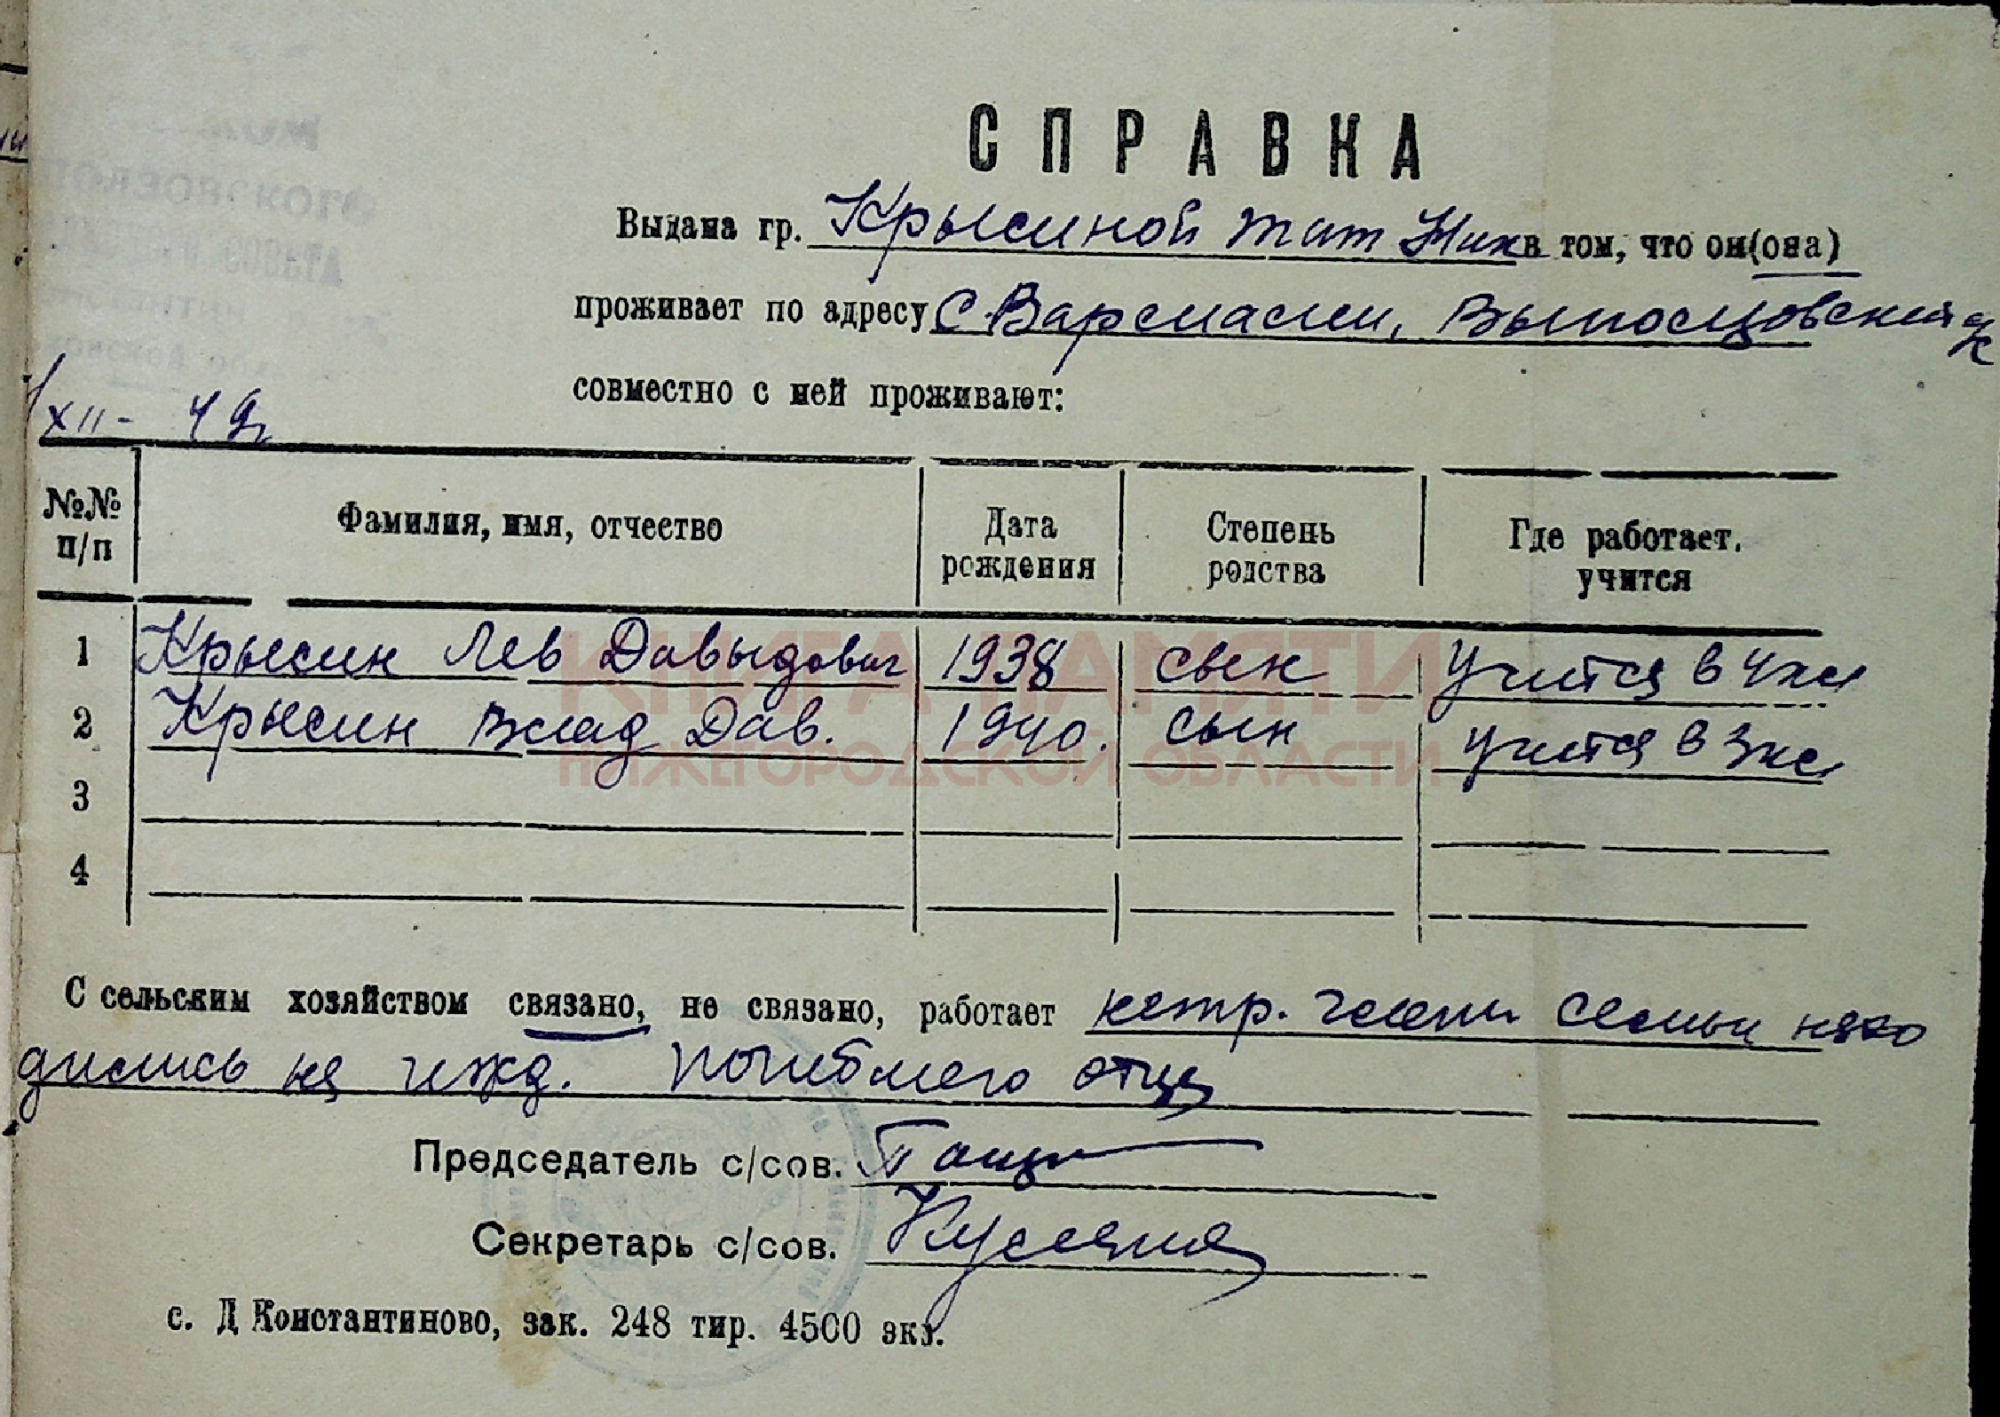 СПРАВКА
Выдана гр. Крысиной Тат Ник в том, что он(она)
проживает по адресу с. Вармалеи,
совместно с ней проживают:
XII- 49г
№№ п/п Фамилия, имя, отчество Дата рождения Степень родства Где работает, учится
1 Крысин Лев Давыдович 1938 сын Учится в 4 кл
2 Крысин Влад Дав. 1940. сын учится в 3 кл
3
4
КНИГА ПАМЯТИ
НИЖЕГОРОДСКОЙ ОБЛАСТИ
С сельским хозяйством связано, не связано, работает нетр. члены семьи нахо
дились на ижд. погибшего отца
Председатель с/сов.
Секретарь с/сов.
с. Д Константиново, зак. 248 тир. 4500 экз.